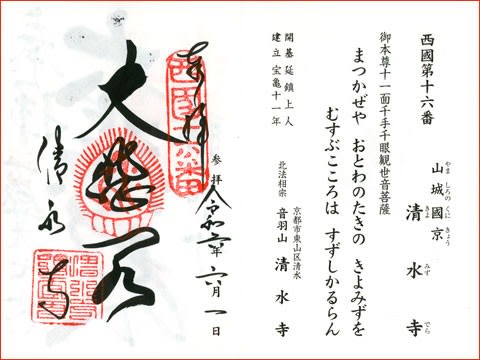 西國第十六番
山城國京 清水寺
やましろのくに きょう きよみずでら
御本尊十一面千手千眼観世音菩薩
まつかぜや おとわのたきの きよみずを
むすぶこころは すずしかるらん
開基延鎮上人
建立宝亀十一年
京都市東山区清水
北法相宗 音羽山 清水寺
奉拝
西国十六番
参拝 令和元年六月一日
大悲閣
清水寺